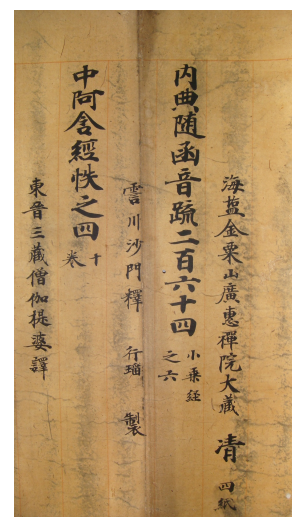 海鹽金栗山廣惠禪院大藏 清 四紙
内典隨函音䟽二百六十四 小乗經之六
霅川沙門釋 行瑫 製
中阿含經帙之四 十卷
東晉三藏僧伽提婆譯